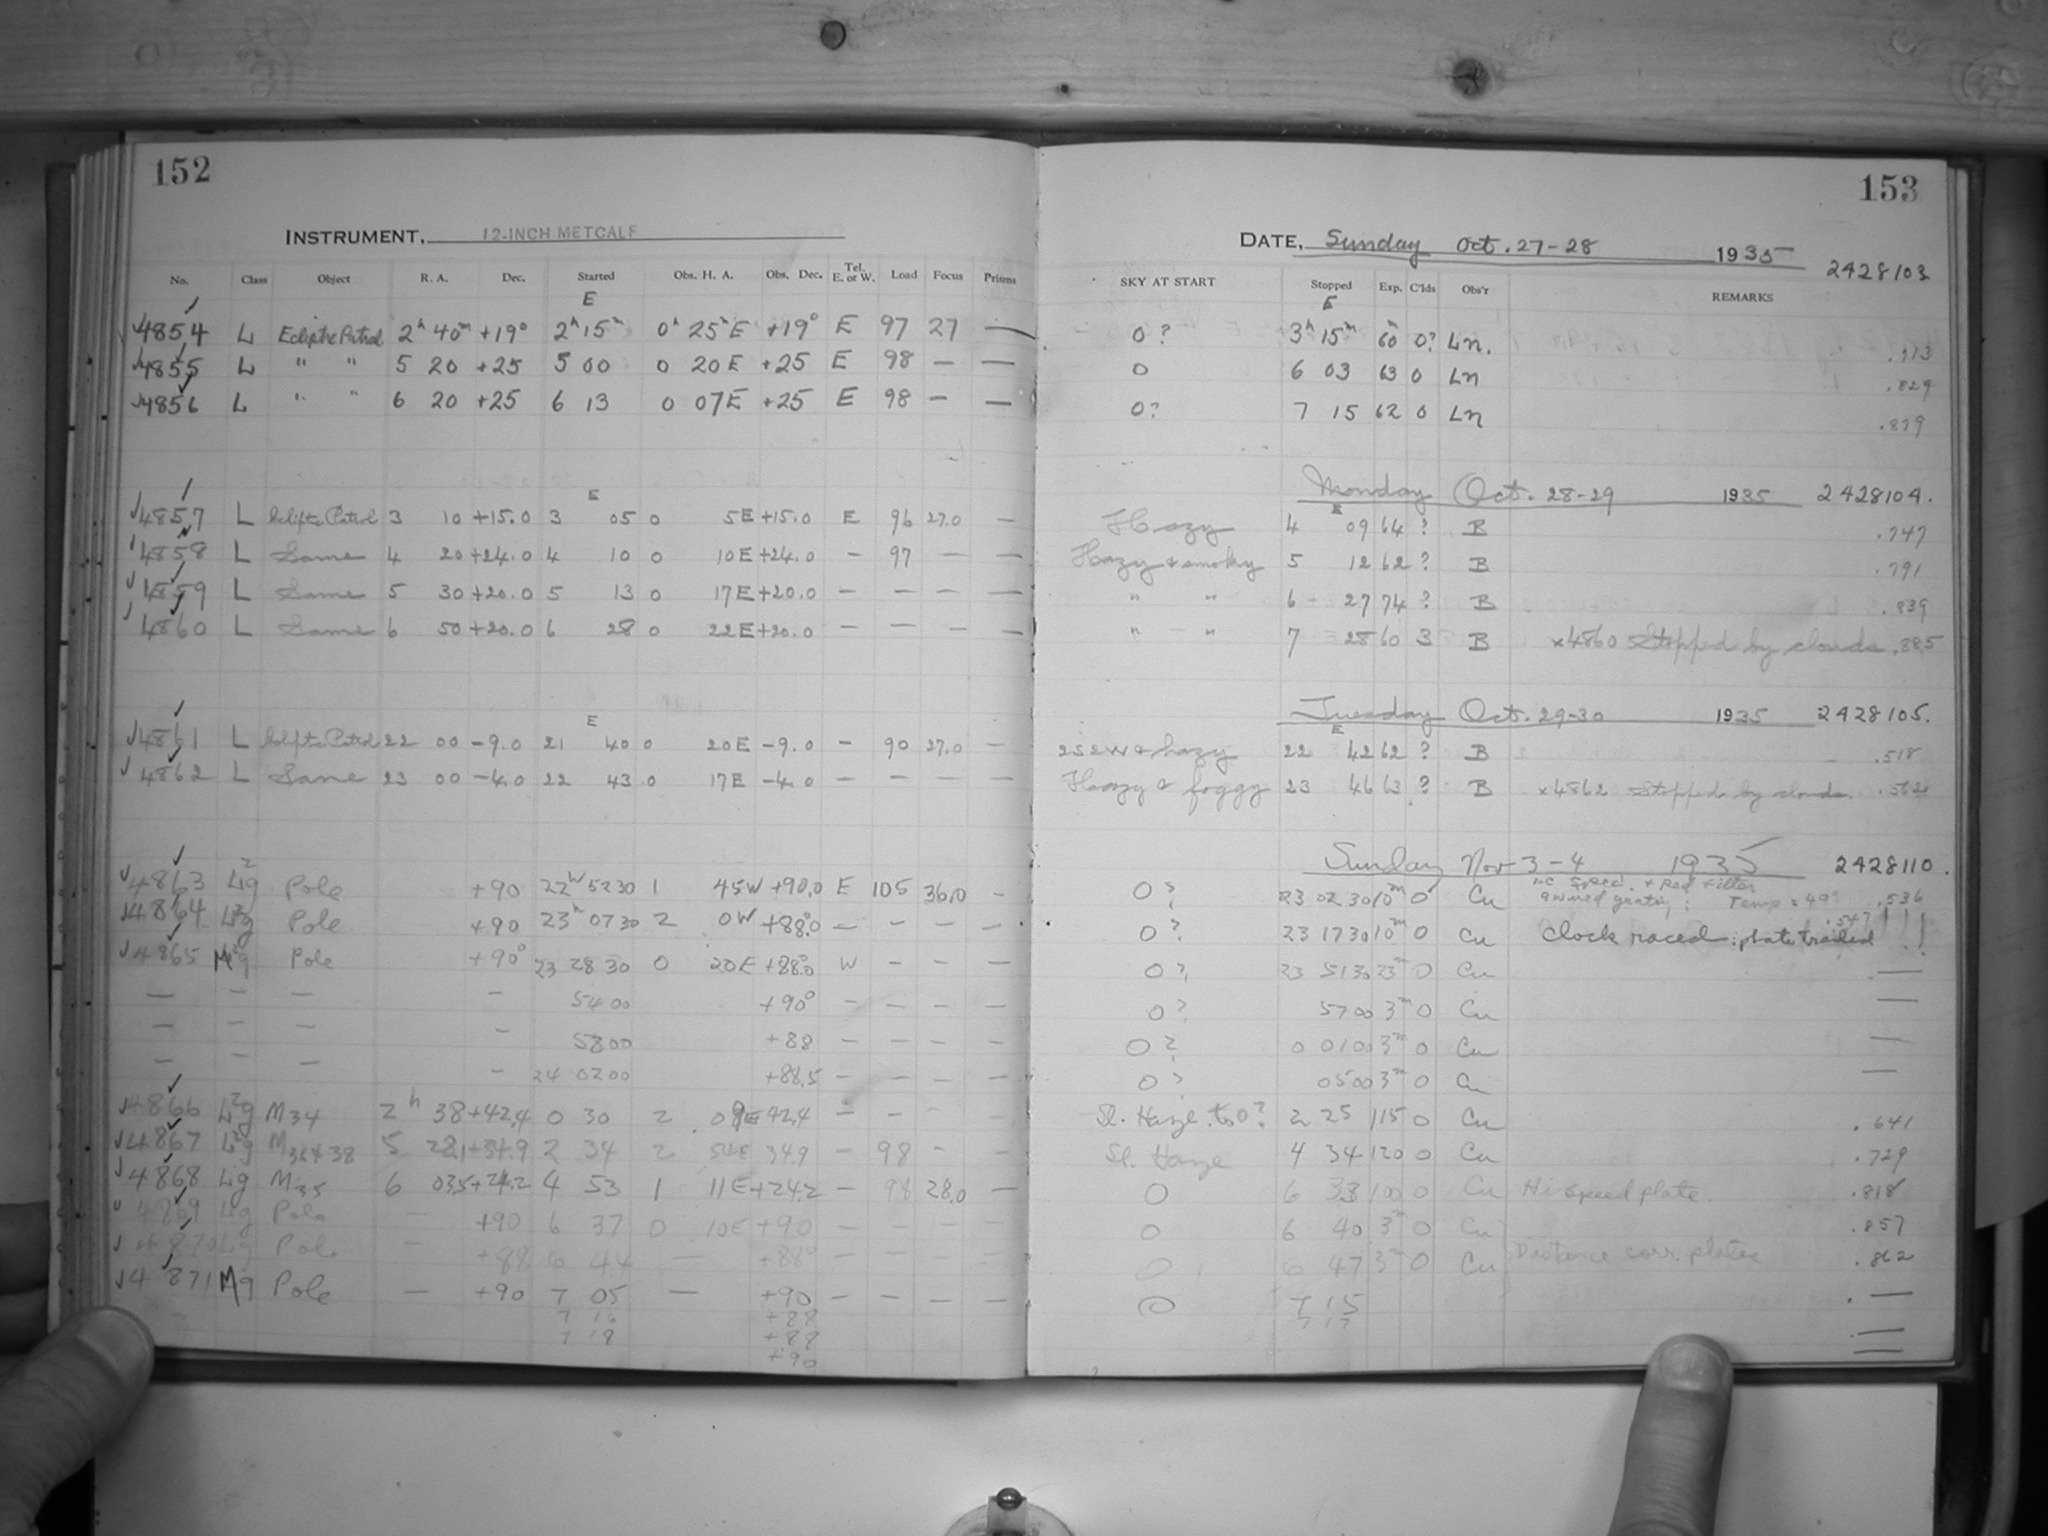 152
INSTRUMENT, 12-INCH METCALF
No. Class Object R. A. Dec. Started Obs. H. A. Obs. Dec. Tel. E. or W. Load Focus Prisms
E
4854 L Ecliptic Patrol 2h 40m +19° 2h 15m 0h 25m E +19° E 97 27 —
4855 L " " 5 20 +25 5 00 0 20 E +25 E 98 — —
4856 L " " 6 20 +25 6 13 0 07 E +25 E 98 — —
E
4857 L Ecliptic Patrol 3 10 +15.0 3 05 0 5 E +15.0 E 96 27.0 —
4858 L Same 4 20 +24.0 4 10 0 10 E +24.0 — 97 — —
4859 L Same 5 30 +20.0 5 13 0 17 E +20.0 — — — —
4860 L Same 6 50 +20.0 6 28 0 22 E +20.0 — — — —
E
4861 L Ecliptic Patrol 22 00 -9.0 21 40 0 20 E -9.0 — 90 27.0 —
4862 L Same 23 00 -4.0 22 43 0 17 E -4.0 — — — —
4863 Pole +90 22 52 30 1 45 W +90.0 E 105 36.0 —
4864 Pole +90 23h 07 30 2 0 W +88.0 — — — —
4865 Pole +90° 23 28 30 0 20 E +88.0 W — — —
— — — — 54 00 +90° — — — —
— — — — 58 00 +88 — — — —
— — — — 24 02 00 +88.5 — — — —
4866 M34 2h 38 +42.4 0 30 2 E 42.4 — — — —
4867 5 28.1 +34.9 2 34 2 54 E 34.9 — 98 — —
4868 M35 6 03.5 +24.2 4 53 1 11 E +24.2 — 98 28.0 —
4869 Pole — +90 6 37 0 10 E +90 — — — —
4870 Pole — +88 6 44 — +88° — — — —
4871 Pole — +90 7 05 — +90 — — — —
7 16 +88
7 18 +88
+90
153
DATE, Sunday Oct. 27-28 1935 2428103
SKY AT START Stopped Exp. C'lds Obs'r REMARKS
E
0? 3h 15m 60m 0? Ln.
0 6 03 63 0 Ln .829
0? 7 15 62 0 Ln .879
Monday Oct. 28-29 1935 2428104.
E
Hazy 4 09 64 ? B .747
Hazy & smoky 5 12 62 ? B .791
" " 6 27 74 ? B .839
" " 7 28 60 3 B x4860 Stopped by clouds .885
Tuesday Oct. 29-30 1935 2428105.
E
2S2W & hazy 22 42 62 ? B .518
Hazy & foggy 23 46 63 ? B x4862 Stopped by clouds. .562
Sunday Nov 3-4 1935 2428110.
0? 23 02 30 10m 0 Cu speed. + Red filter
grating; Temp = 49° .536
0? 23 17 30 10m 0 Cu clock raced; plate trailed .547 !!!
0? 23 51 30 23m 0 Cu —
0? 57 00 3m 0 Cu —
0? 0 01 00 3m 0 Cu —
0? 05 00 3m 0 Cu —
Sl. Haze to 0? 2 25 115 0 Cu .641
Sl. Haze 4 34 120 0 Cu .729
0 6 33 100 0 Cu Hi speed plate. .818
0 6 40 3m 0 Cu .857
0 6 47 3m 0 Cu Distance corr. plates .862
0 7 15 —
7 17 —
—